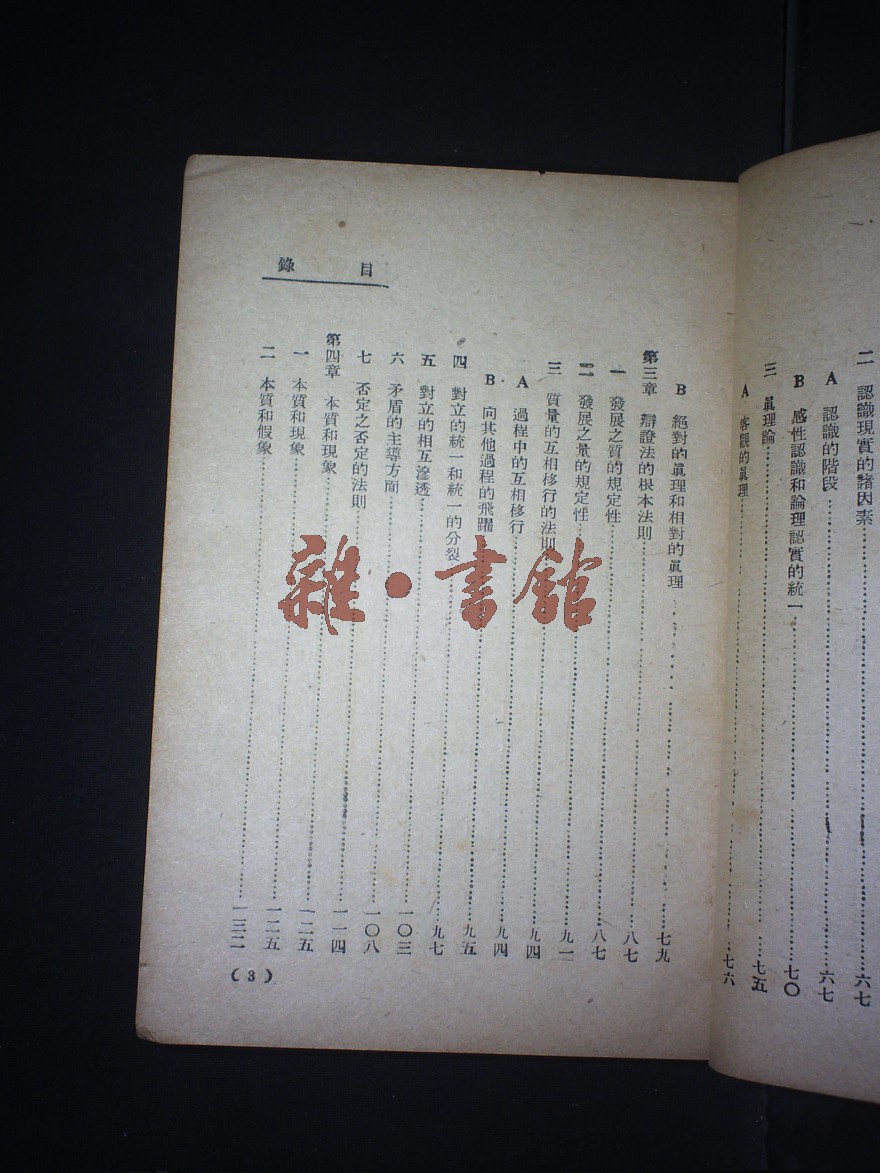 二 認識現實的諸因素……六七
A 認識的階段……六七
B 感性認識和論理認實的統一……七〇
三 眞理論……七五
A 客觀的眞理……七六
目錄
B 絕對的眞理和相對的眞理……七九
第三章 辯證法的根本法則……八七
一 發展之質的規定性……八七
二 發展之量的規定性……九一
三 質量的互相移行的法則……九四
A 過程中的互相移行……九四
B 向其他過程的飛躍……九五
四 對立的統一和統一的分裂……九七
五 對立的相互滲透……一〇三
六 矛盾的主導方面……一〇八
七 否定之否定的法則……一一四
第四章 本質和現象……一二五
一 本質和現象……一二五
二 本質和假象……一三二
(3)
雜·書館